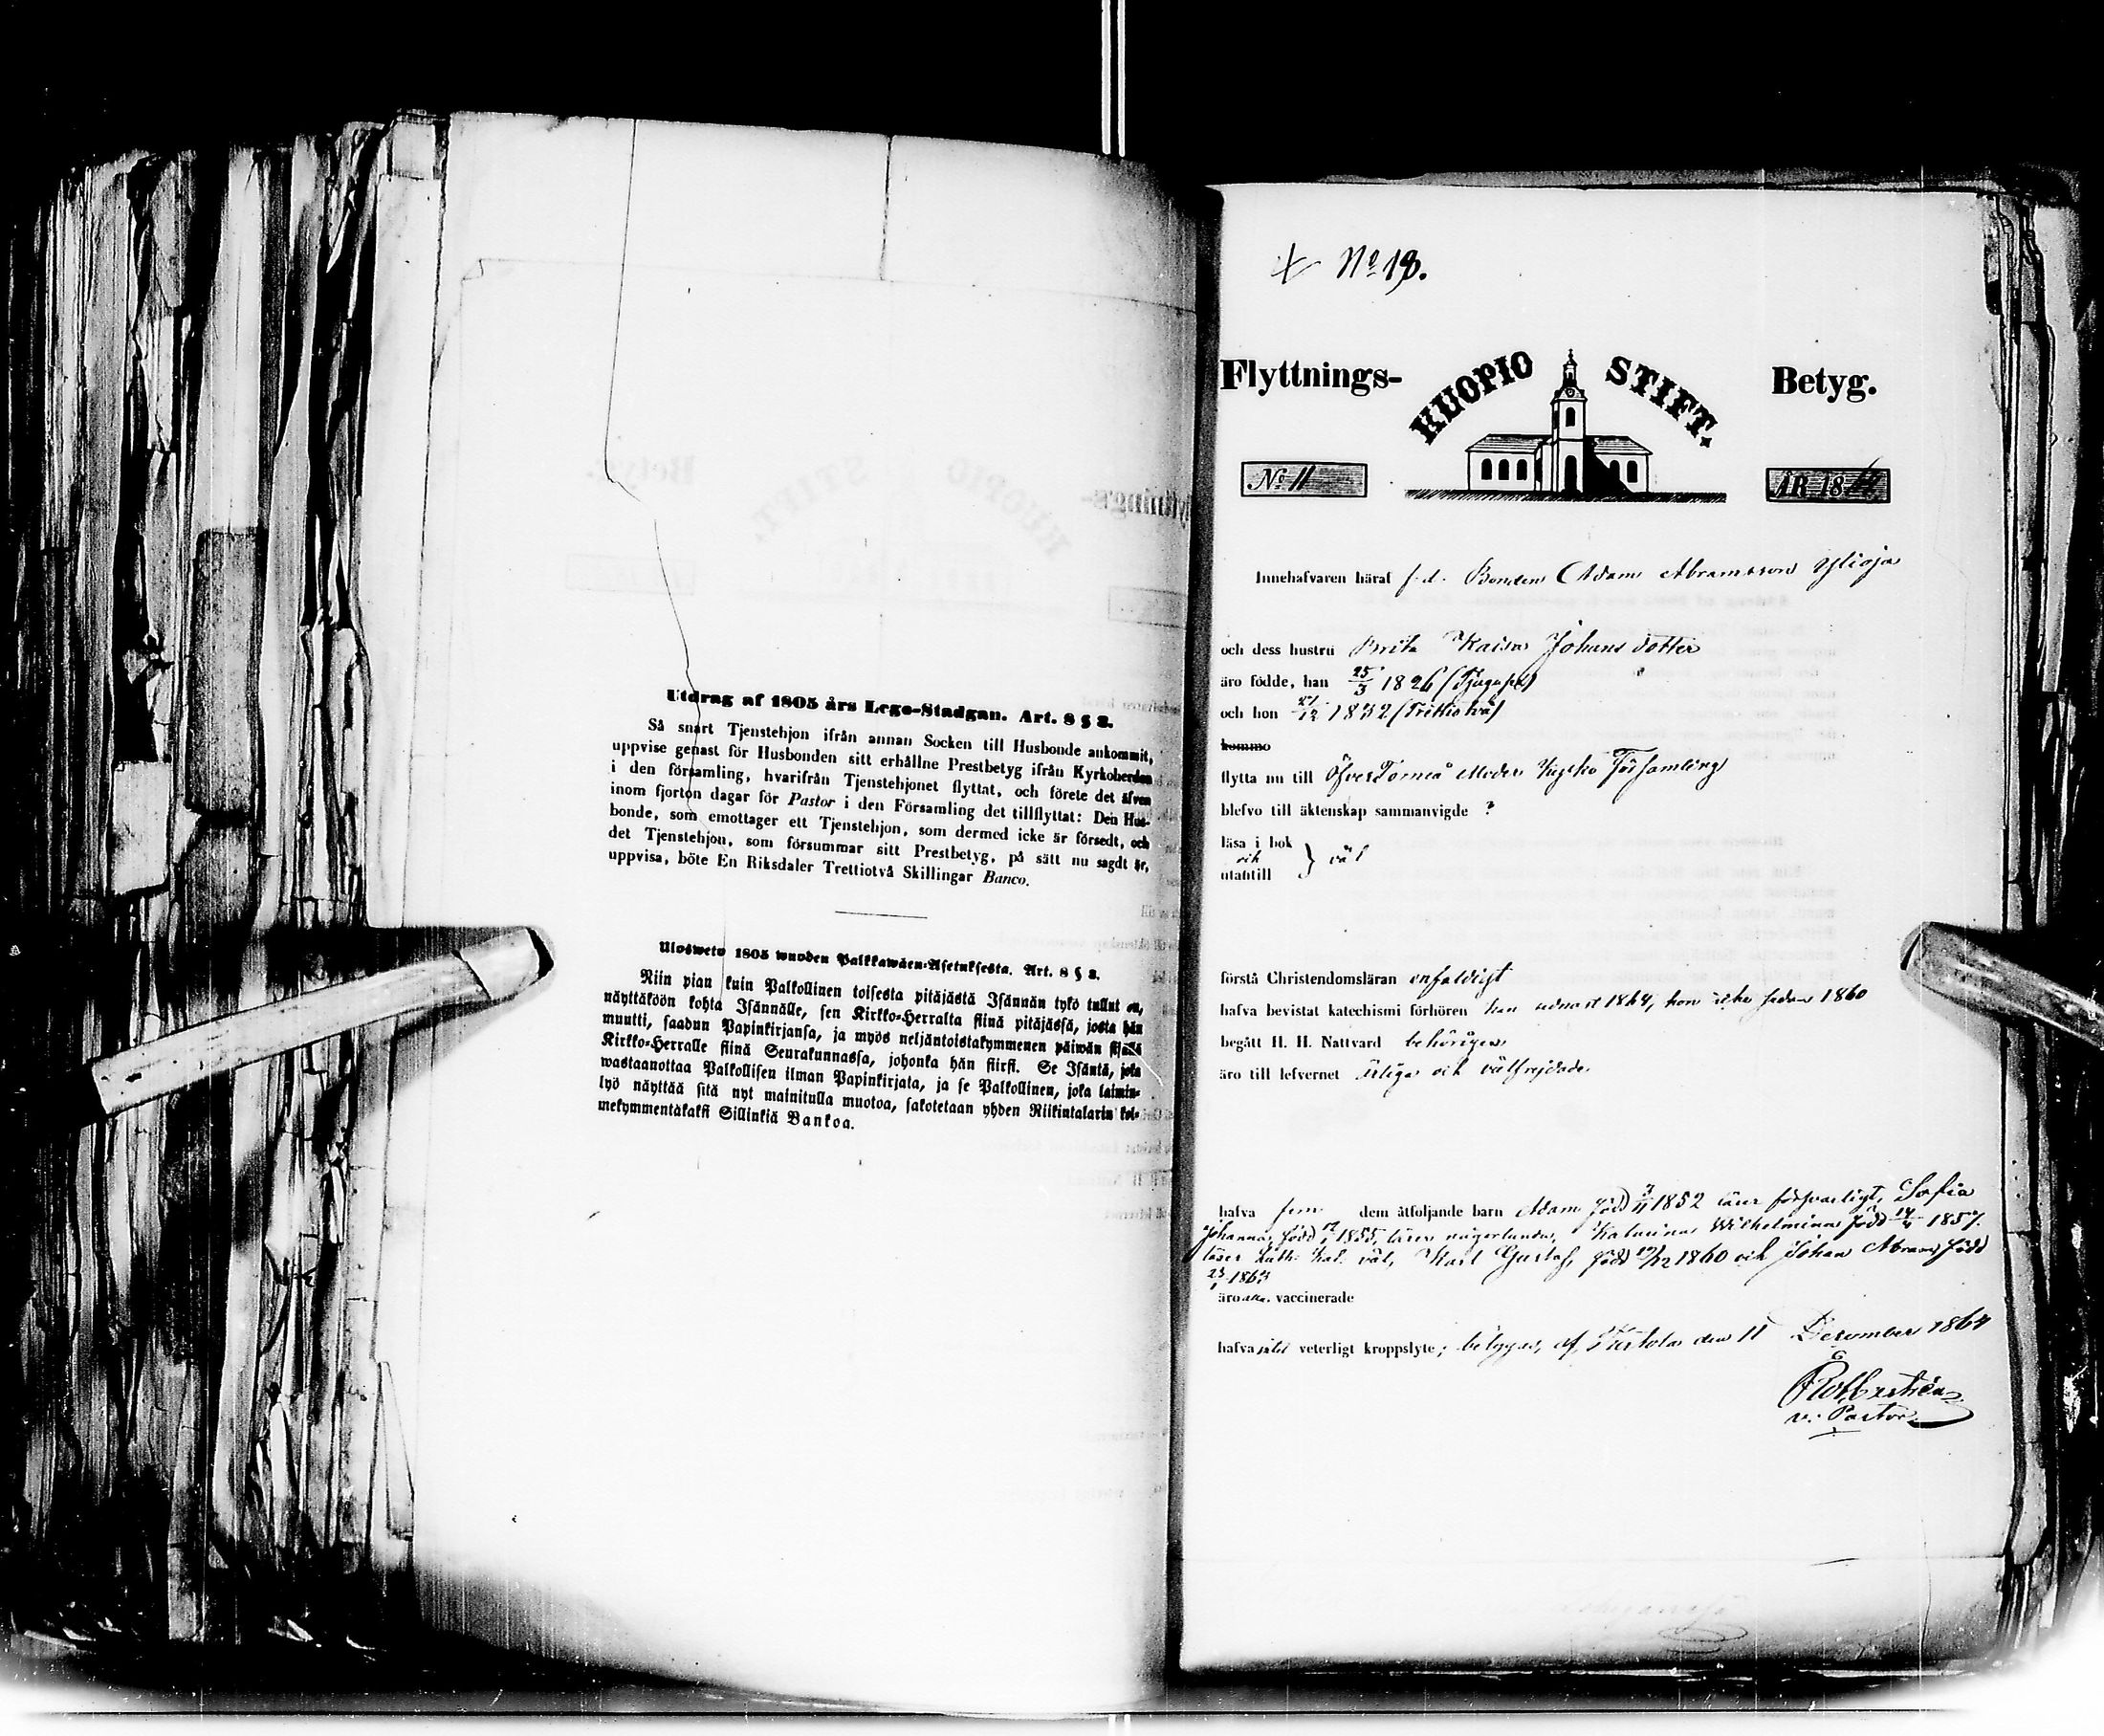 Utdrag af 1805 års Lego-Stadgan. Art. 8 § 8.
Så snart Tjenstehjon ifrån annan Socken till Husbonde ankommit,
uppvise genast för Husbonden sitt erhållne Prestbetyg ifrån Kyrkoherden
i den församling, hvarifrån Tjenstehjonet flyttat, och förete det äfven
inom fjorton dagar för Pastor i den Församling det tillflyttat: Den Hus-
bonde, som emottager ett Tjenstehjon, som dermed icke är försedt, och
det Tjenstehjon, som försummar sitt Prestbetyg, på sätt nu sagdt är,
uppvisa, böte En Riksdaler Trettiotvå Skillingar Banco.
Ulosweto 1805 wuoden Palkkawäen-Asetuksesta. Art. 8 § 8.
Niin pian kuin Palkollinen toisesta pitäjästä Isännän tykö tullut on,
näyttäköön kohta Isännälle, sen Kirkko-Herralta siinä pitäjässä, josta hän
muutti, saadun Papinkirjansa, ja myös neljäntoistakymmenen päiwän sisällä
Kirkko-Herralle siinä Seurakunnassa, johonka hän siirsi. Se Isäntä, joka
wastaanottaa Palkollisen ilman Papinkirjata, ja se Palkollinen, joka laimin-
lyö näyttää sitä nyt mainitulla muotoa, sakotetaan yhden Riikintalarin kol-
mekymmentäkaksi Sillinkiä Bankoa.
№ 19.
Flyttnings- KUOPIO STIFT. Betyg.
№ 11 ÅR 1864
Innehafvaren häraf f.d. Bonden Adam Abramsson Ylioja
och dess hustru Brita Kaisa Johansdotter
äro födde, han 25/3 1826 (Tjugusex)
och hon 27/12 1832 (Trettiotvå)
kommo
flytta nu till ÖfverTorneå Församling
blefvo till äktenskap sammanvigde ?
läsa i bok
och } väl
utantill
förstå Christendomsläran enfaldigt
hafva bevistat katechismi förhören han senast 1864, hon icke sedan 1860
begått H. H. Nattvard behörigen
äro till lefvernet ärliga och välfrejdade.
hafva fem dem åtföljande barn Adam född 3/11 1852 läser försvarligt, Sofia
Johanna, född 1855, läser någorlunda, Katarina Wilhelmina född 14/4 1857.
läser Luth. Kat. väl, Karl Gustaf, född 19/12 1860 och Johan Abram, född
23/1 1863
äro alla vaccinerade
hafva intet veterligt kroppslyte; betygas, af Turtola den 11 December 1864
v. Pastor.